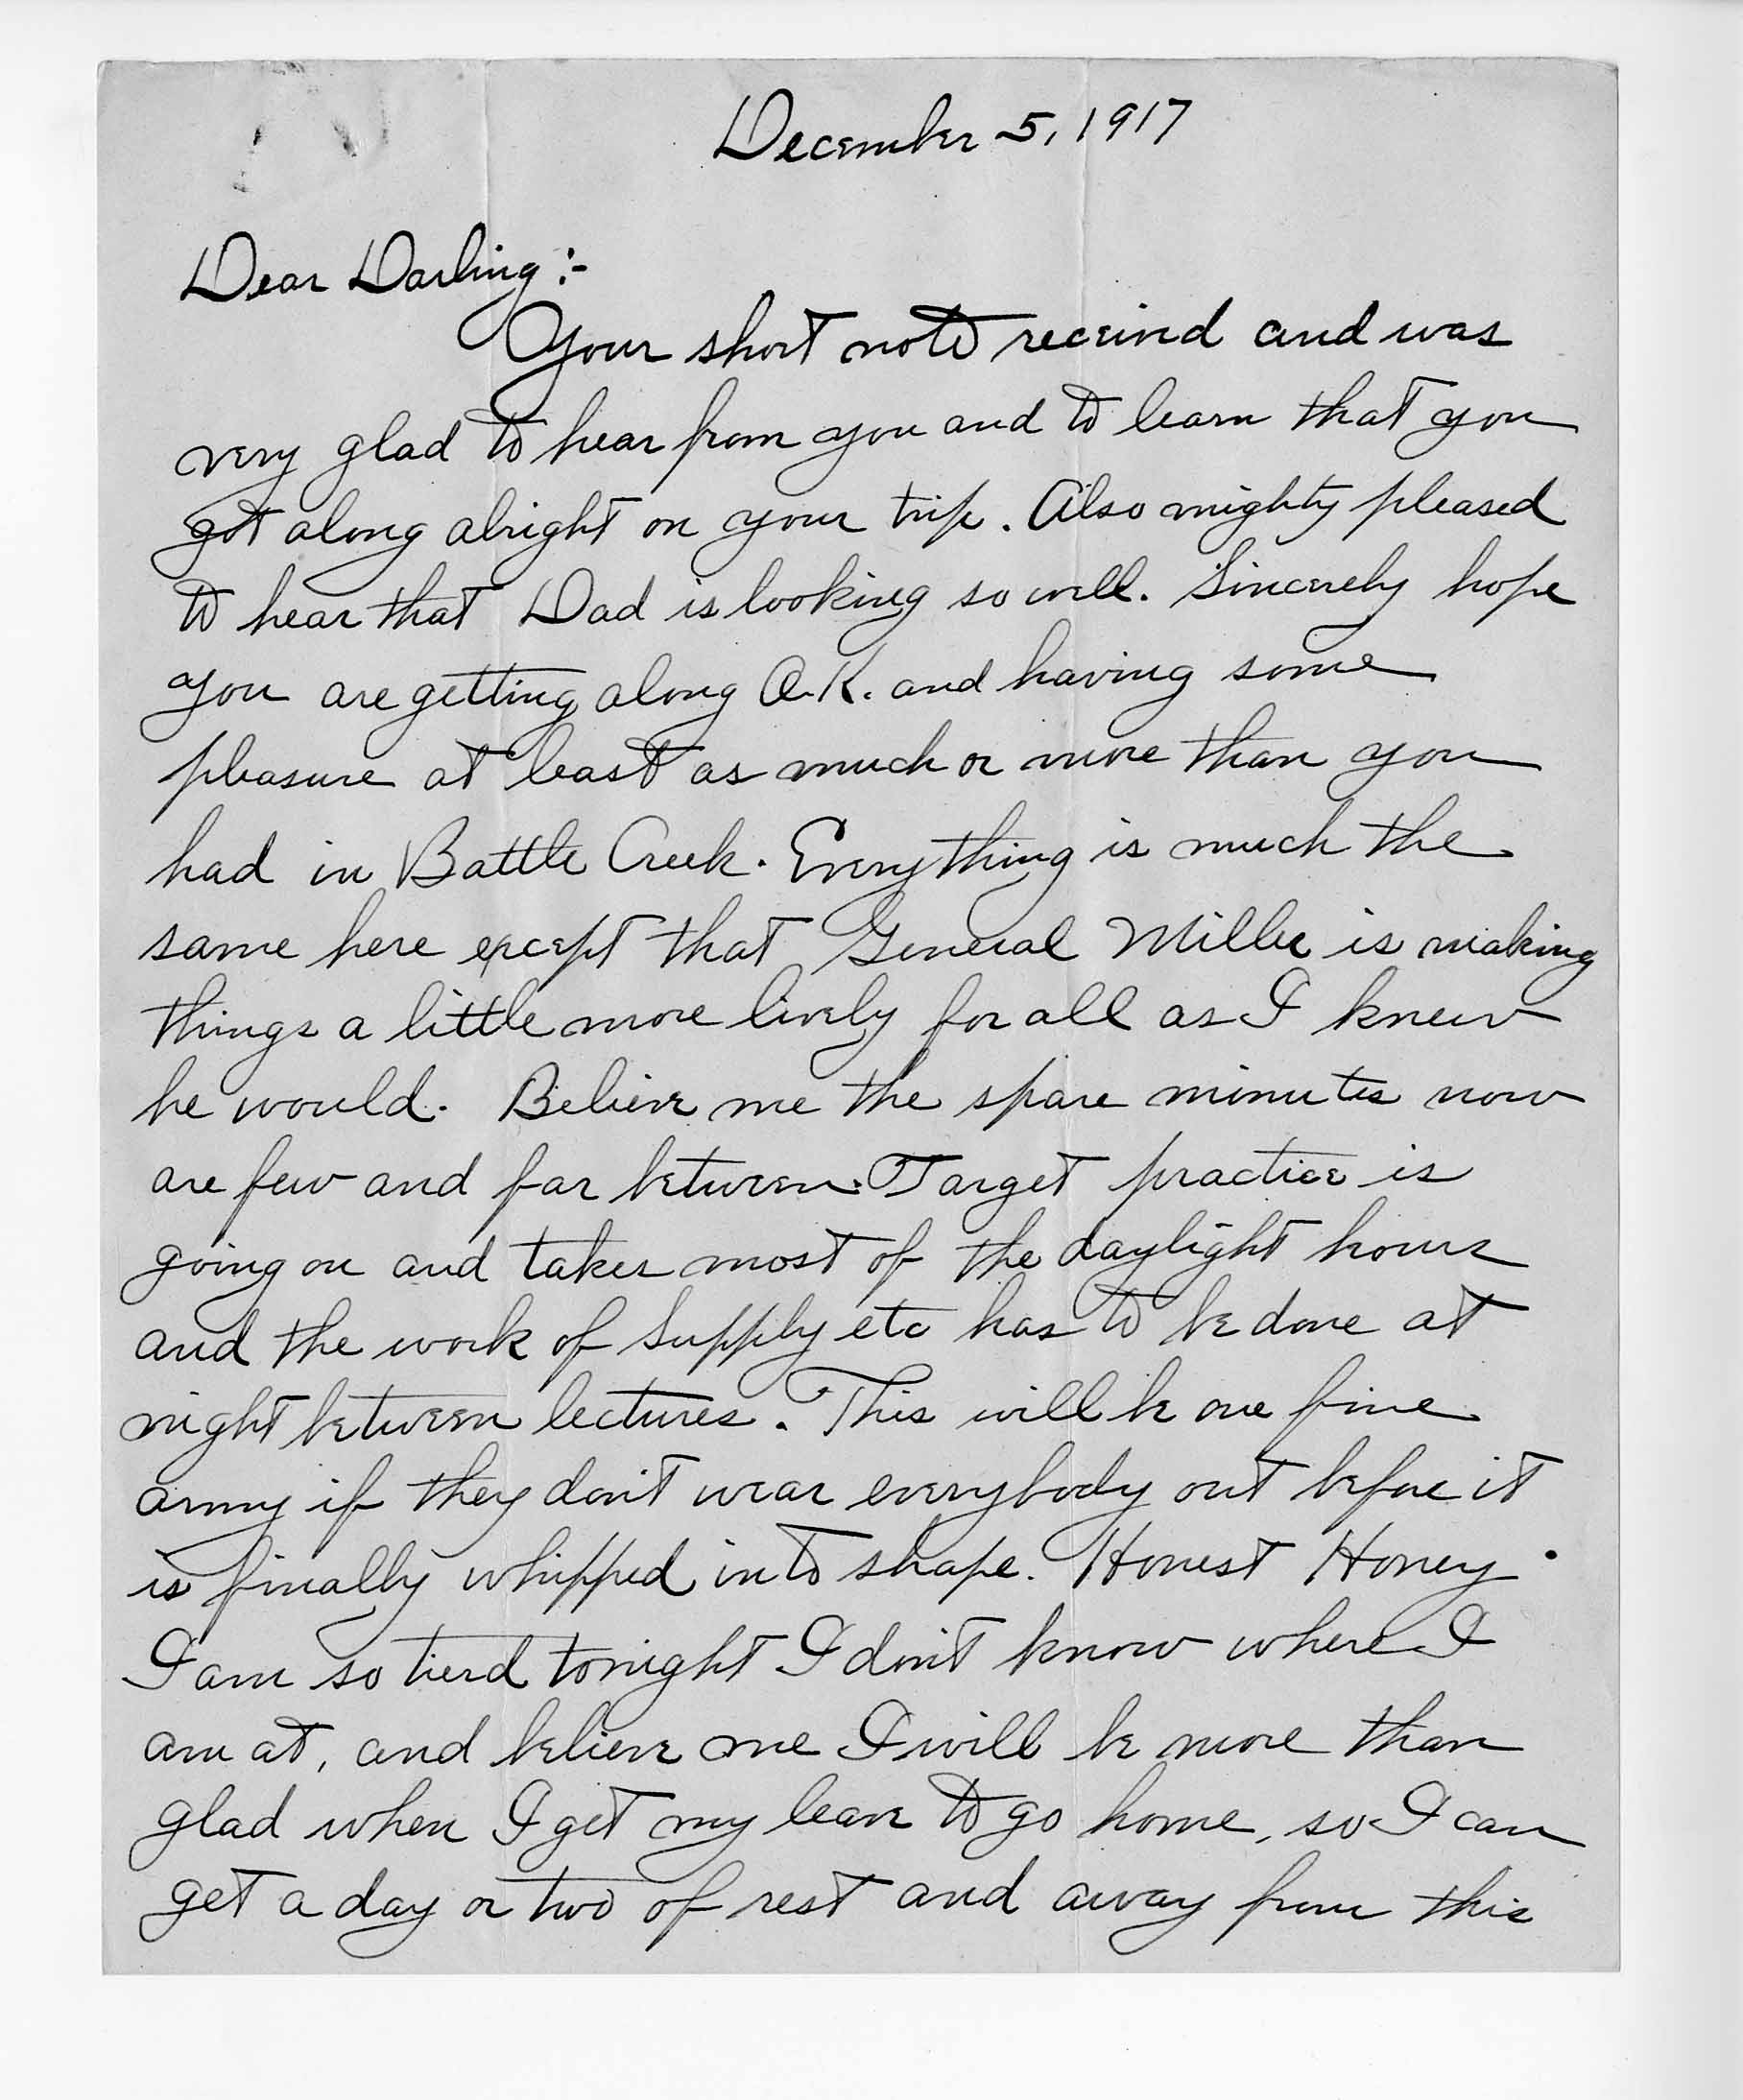 December 5, 1917
Dear Darling:-
Your short note received and was
very glad to hear from you and to learn that you
got along alright on your trip. Also mighty pleased
to hear that Dad is looking so well. Sincerely hope
you are getting along O.K. and having some
pleasure at least as much or more than you
had in Battle Creek. Everything is much the
same here except that General Miller is making
things a little more lively for all as I knew
he would. Believe me the spare minutes now
are few and far between. Target practice is
going on and takes most of the daylight hours
and the work of Supply etc has to be done at
night between lectures. This will be one fine
army if they don't wear everybody out before it
is finally whipped into shape. Honest Honey.
I am so tierd tonight I don't know where I
am at, and believe me I will be more than
glad when I get my leave to go home, so I can
get a day or two of rest and away from this